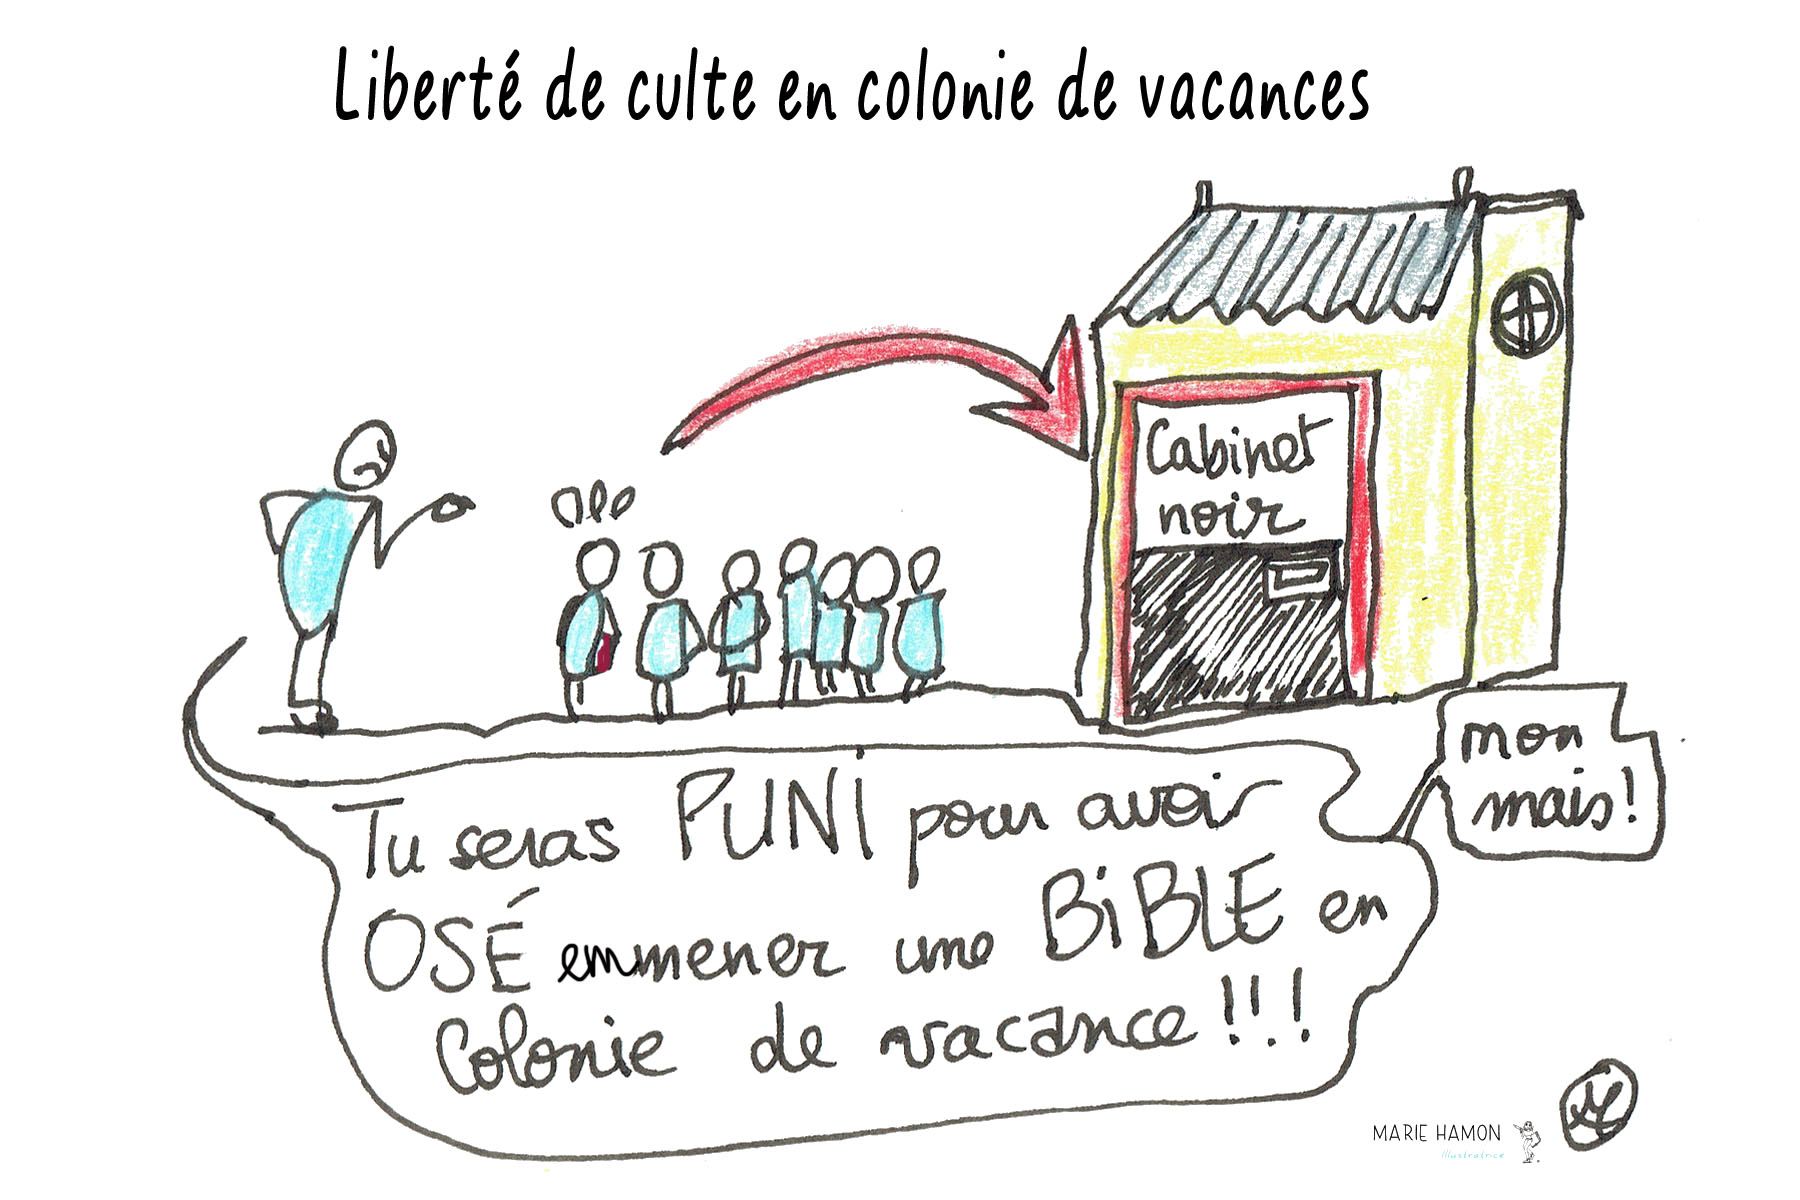 Liberté de culte en colonie de vacances
Cabinet
noir
Tu seras PUNI pour avoir
OSÉ emmener une BiBLE en
Colonie de vacance!!!
mon
mais!
MARIE HAMON
Illustratrice